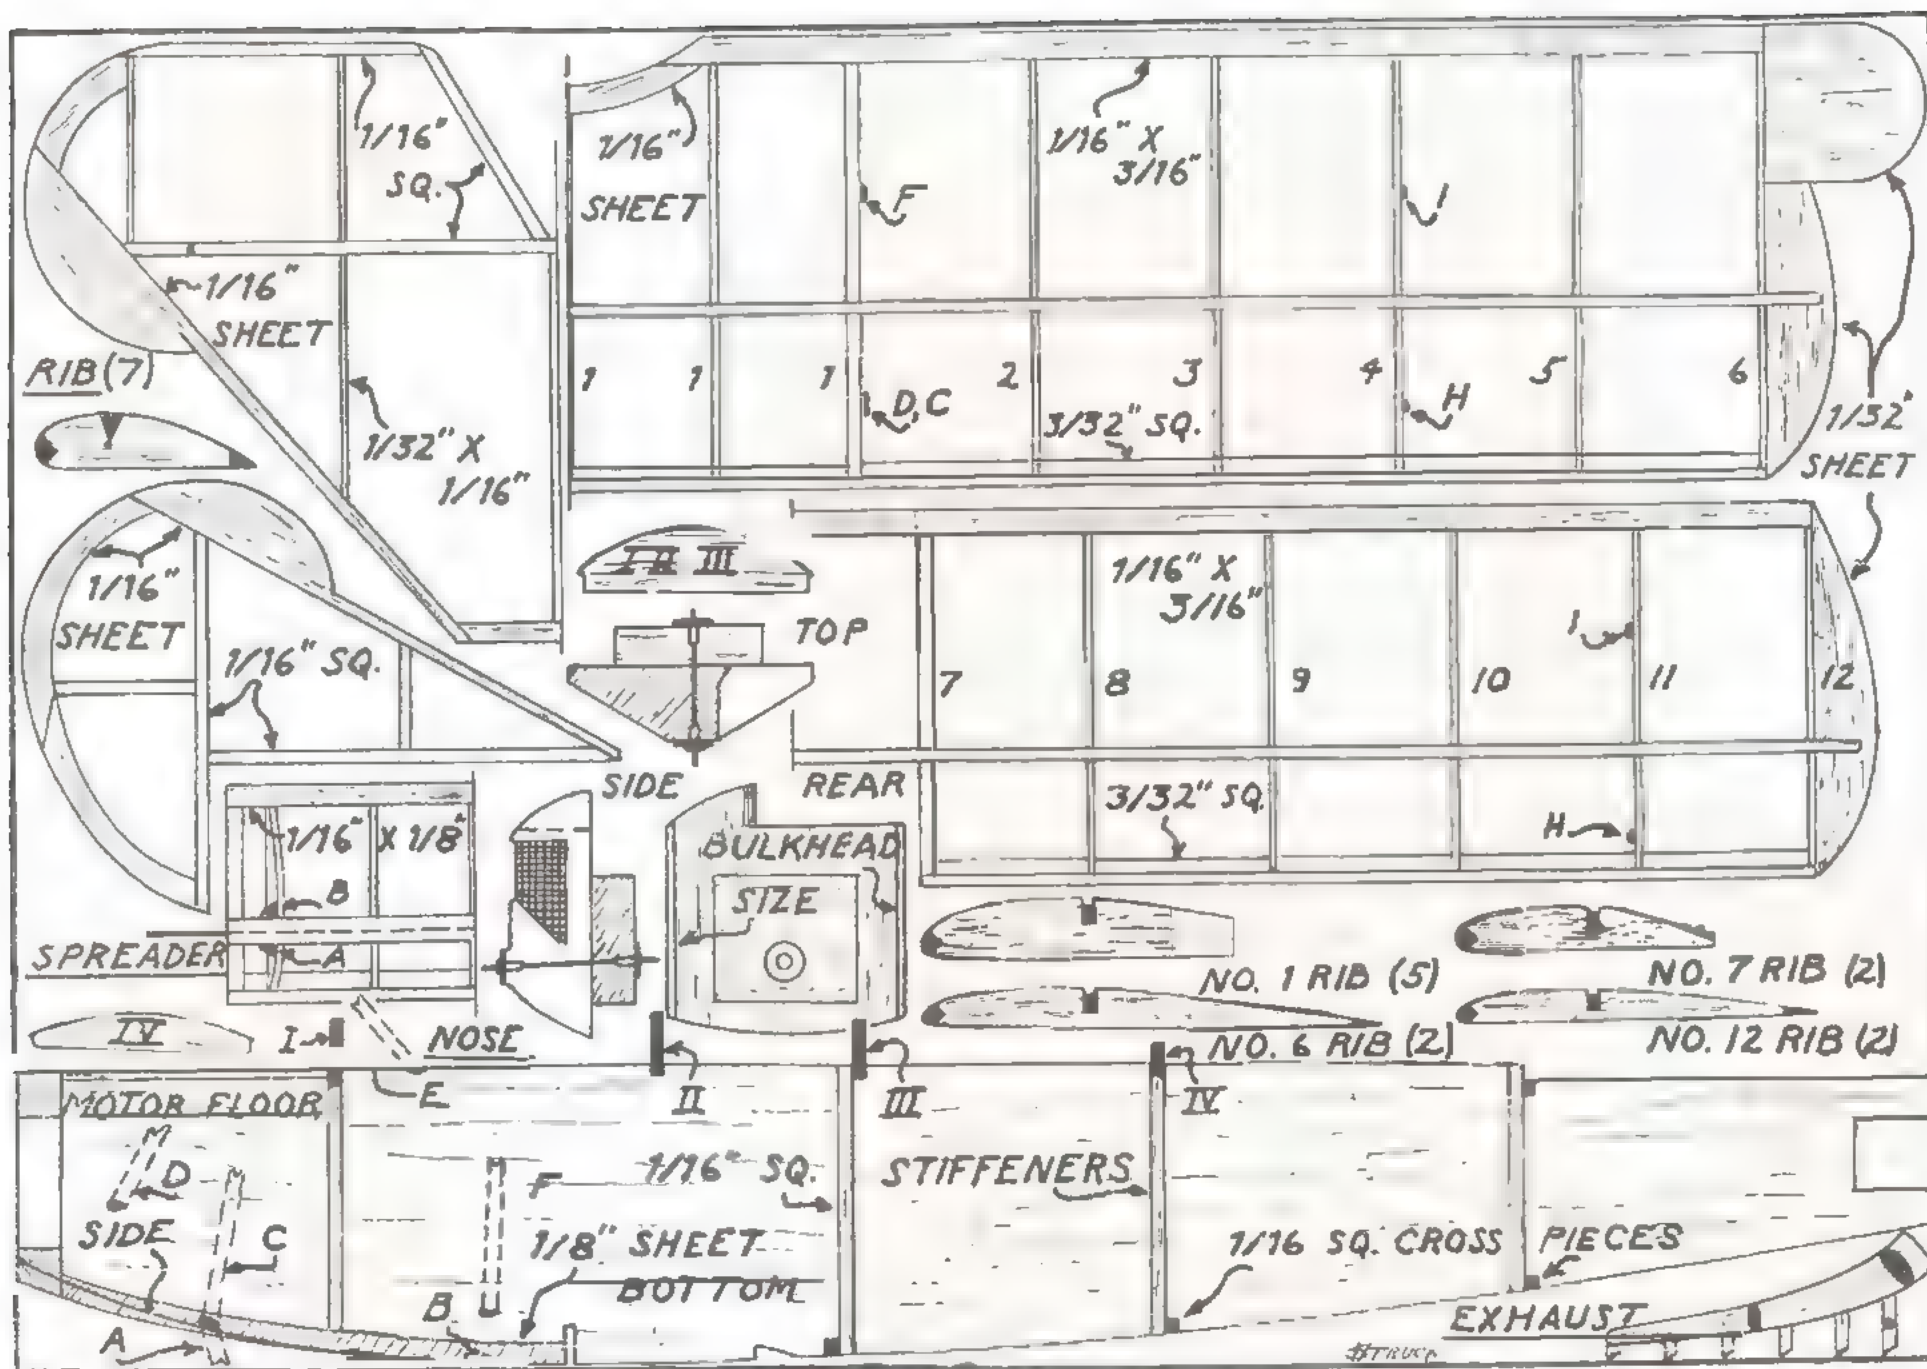 1/16"
SQ.
1/16"
SHEET
RIB (7)
1/32" X
1/16"
1/16"
SHEET
F
1/16" X
3/16"
I
1 1 1 2 3 4 5 6
D, C
3/32" SQ.
H
1/32"
SHEET
1/16"
SHEET
1/16" SQ.
I II III
TOP
1/16" X
3/16"
I
7 8 9 10 11 12
3/32" SQ.
H
SIDE
REAR
1/16" X 1/8"
B
A
SPREADER
BULKHEAD
SIZE
NO. 1 RIB (5)
NO. 7 RIB (2)
NO. 6 RIB (2)
NO. 12 RIB (2)
IV
I
NOSE
E
II
III
IV
MOTOR FLOOR
D
SIDE
C
A
F
1/16" SQ.
STIFFENERS
1/8" SHEET
BOTTOM
B
1/16 SQ. CROSS PIECES
EXHAUST